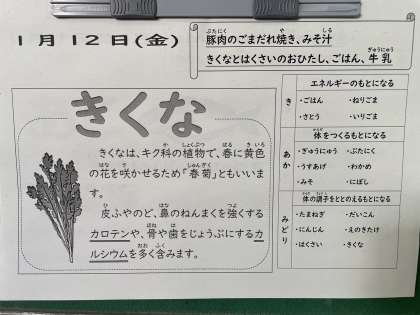 1月12日(金)
豚肉のごまだれ焼き、みそ汁
きくなとはくさいのおひたし、ごはん、牛乳
きくな
きくなは、キク科の植物で、春に黄色
の花を咲かせるため「春菊」ともいいま
す。
皮ふやのど、鼻のねんまくを強くする
カロテンや、骨や歯をじょうぶにするカ
ルシウムを多く含みます。
き
エネルギーのもとになる
・ごはん ・ねりごま
・さとう ・いりごま
あか
体をつくるもとになる
・ぎゅうにゅう ・ぶたにく
・うすあげ ・わかめ
・みそ ・にぼし
みどり
体の調子をととのえるもとになる
・たまねぎ ・だいこん
・にんじん ・えのきたけ
・はくさい ・きくな